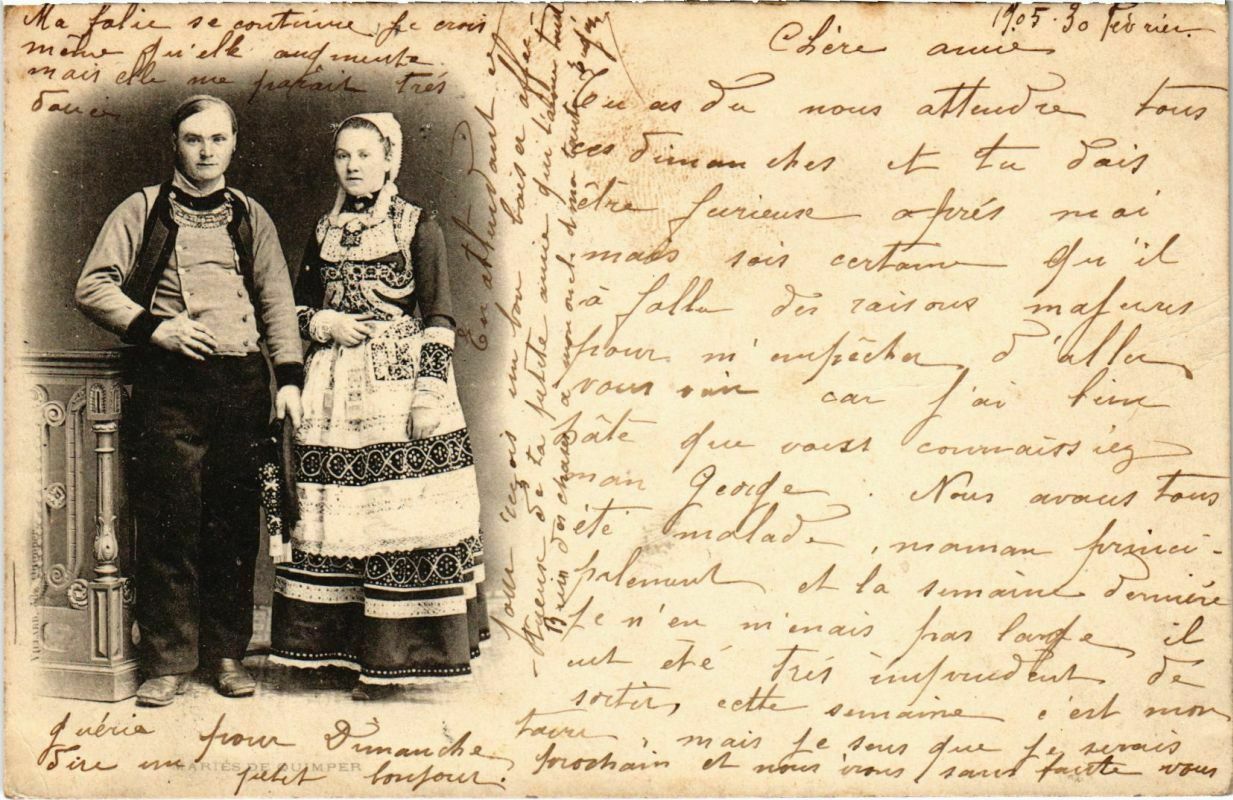 1905. 30 Février.
Chère amie
Tu as du nous attendre tous
ces dimanches et tu dois
être furieuse après moi
mais sois certaine qu'il
à fallu des raisons majeures
pour m'empêcher d'aller
vous voir car j'ai bien
hâte que vous connaissiez
mon George. Nous avons tous
été malade, maman princi-
palement et la semaine dernière
je n'en menais pas large, il
eut été très imprudent de
sortir, cette semaine c'est mon
tour, mais je sens que je serais
guérie pour Dimanche
prochain et nous irons sans faute vous
dire un petit bonjour.
En attendant ce
jour reçois un bon baiser affec-
tueuse de ta petite amie qui t'aime tout
Bien des choses à
Ma folie se continue, je crois
même qu'elle augmente
mais elle me paraît très
douce
MARIÉS DE QUIMPER
VILLARD, Quimper